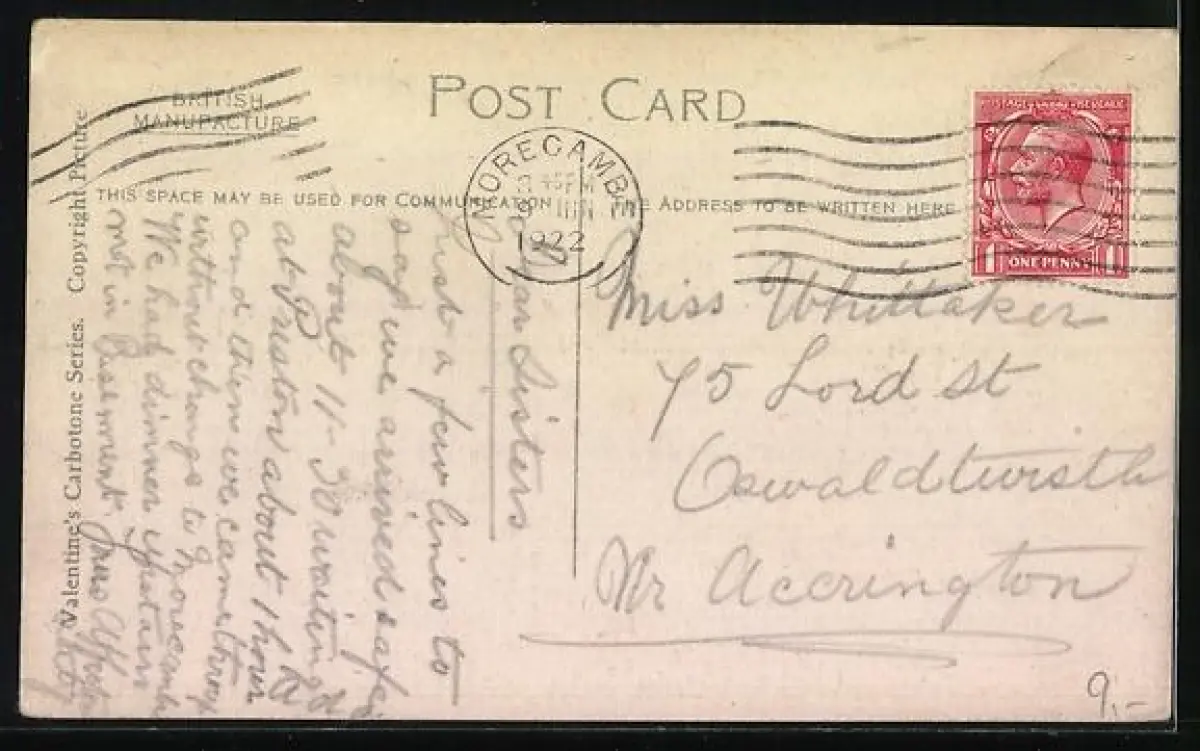 POST CARD
BRITISH
MANUFACTURE
THIS SPACE MAY BE USED FOR COMMUNICATION
THE ADDRESS TO BE WRITTEN HERE
Valentine's Carbotone Series. Copyright Picture
MORECAMBE
9 JUN
1922
POSTAGE REVENUE
1 ONE PENNY 1
Miss Whittaker
75 Lord St
Oswaldtwistle
Nr Accrington
Dear Sisters
Just a few lines to
say we arrived safe
about 11-30 waiting
at Preston about 1 hour
and then we came through
without change to Morecambe
We had dinner upstairs
not in Basement yours Affect
9.-